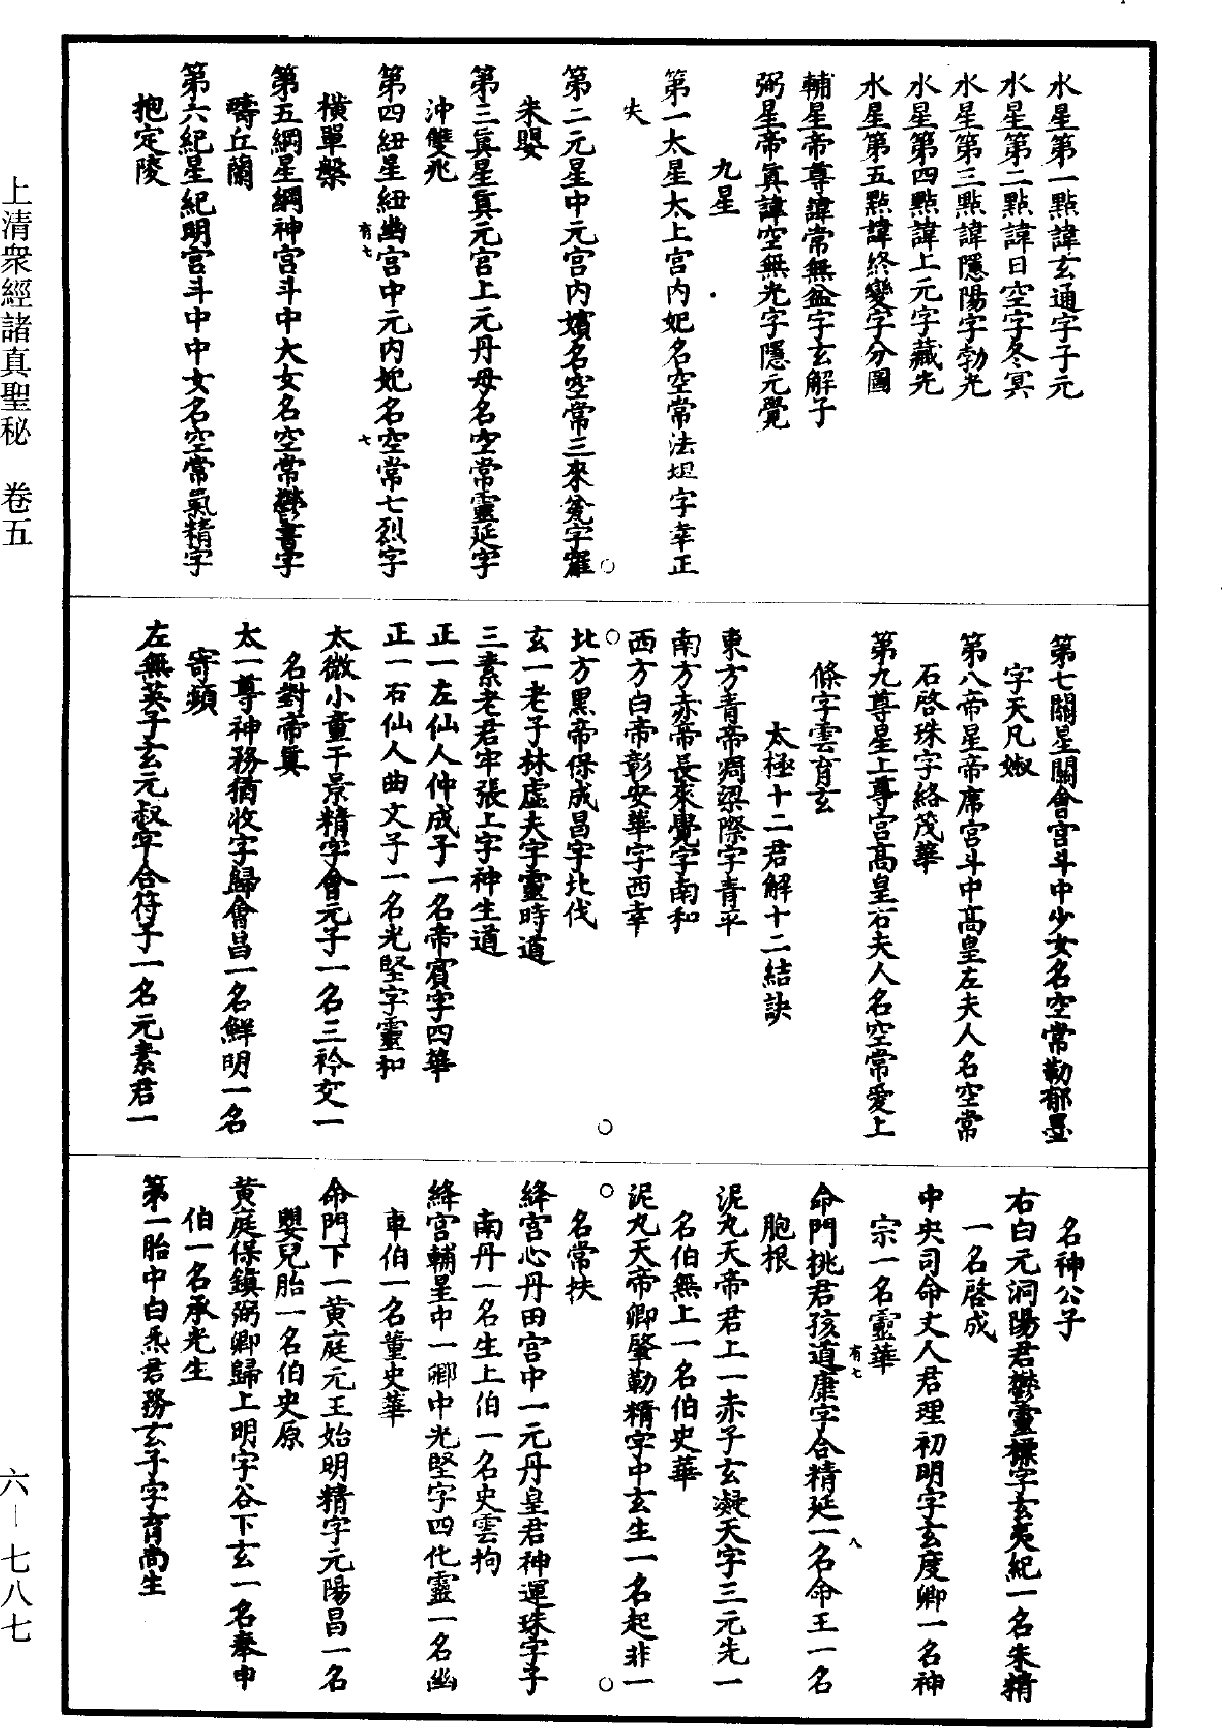 水星第一點諱玄通字子元
水星第二點諱日空字冬冥
水星第三點諱隱陽字勃光
水星第四點諱上元字藏光
水星第五點諱終變字分圖
輔星帝尊諱常無盆字玄解子
弼星帝真諱空無光字隱元覺
九星
第一太星太上宫内妃名空常法坦字幸正
失
第二元星中元宫内嬪名空常三來字
朱嬰
第三真星真元宫上元丹母名空常靈延字
沖雙兆
第四紐星紐幽宫中元内妃名空常七烈字
有七
七
横單槃
第五綱星綱神宫斗中大女名空常字
疇丘蘭
第六紀星紀明宫斗中中女名空常氣精字
抱定陵
第七關星關會宫斗中少女名空常勒郁墨
字天凡婌
第八帝星帝席宫斗中髙皇左夫人名空常
石啓珠字絡茂華
第九尊星上尊宫髙皇右夫人名空常愛上
條字雲育玄
太極十二君解十二結訣
東方青帝凋梁際字青平
南方赤帝長來覺字南和
西方白帝彰安華字西幸
北方黑帝保成昌字北伐
玄一老子林虛夫字靈時道
三素老君牢張上字神生道
正一左仙人仲成子一名帝賓字四華
正一右仙人曲文子一名光堅字靈和
太微小童干景精字會元子一名三衿交一
名對帝真
太一尊神務猶收字歸會昌一名鮮明一名
寄頻
左無英子玄元叔字合符子一名元素君一
名神公子
右白元洞陽君鬱靈標字玄夷紀一名朱精
一名啓成
中央司命丈人君理初明字玄度卿一名神
宗一名靈華
有七
命門桃君孩道康字合精延一名命王一名
八
胞根
泥丸天帝君上一赤子玄凝天字三元先一
名伯無上一名伯史華
泥丸天帝卿肇勒精字中玄生一名起非一
名常扶
絳宫心丹田宫中一元丹皇君神運珠字子
南丹一名生上伯一名史雲拘
絳宫輔星中一卿中光堅字四化靈一名幽
車伯一名董史華
命門下一黄庭元王始明精字元陽昌一名
嬰兒胎一名伯史原
黄庭保鎮弼卿歸上明字谷下玄一名奉申
伯一名承光生
第一胎中白炁君務玄子字育尚生
上清衆經諸真聖秘 卷五
六—七八七